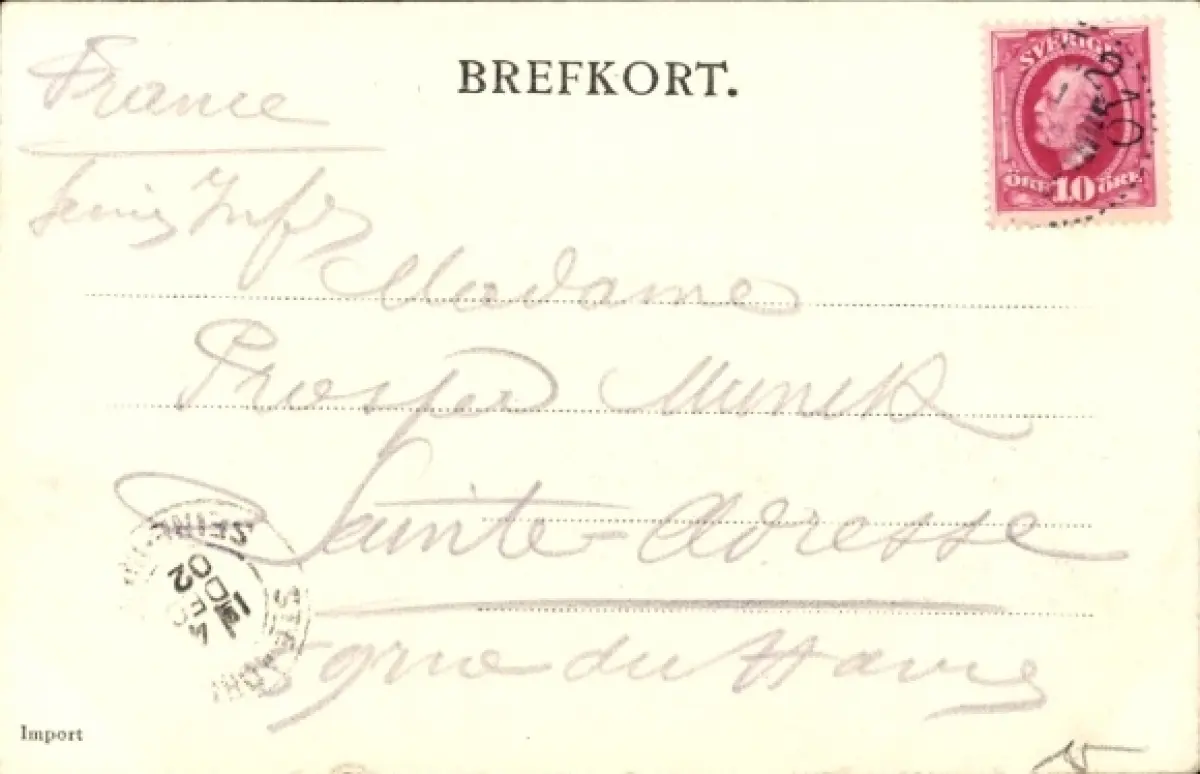 France
BREFKORT.
SVERIGE
ÖRE 10 ÖRE
Seine Infre
Madame
Prosper Munck
Sainte-Adresse
du Havre
SEINE
DEC
02
Import